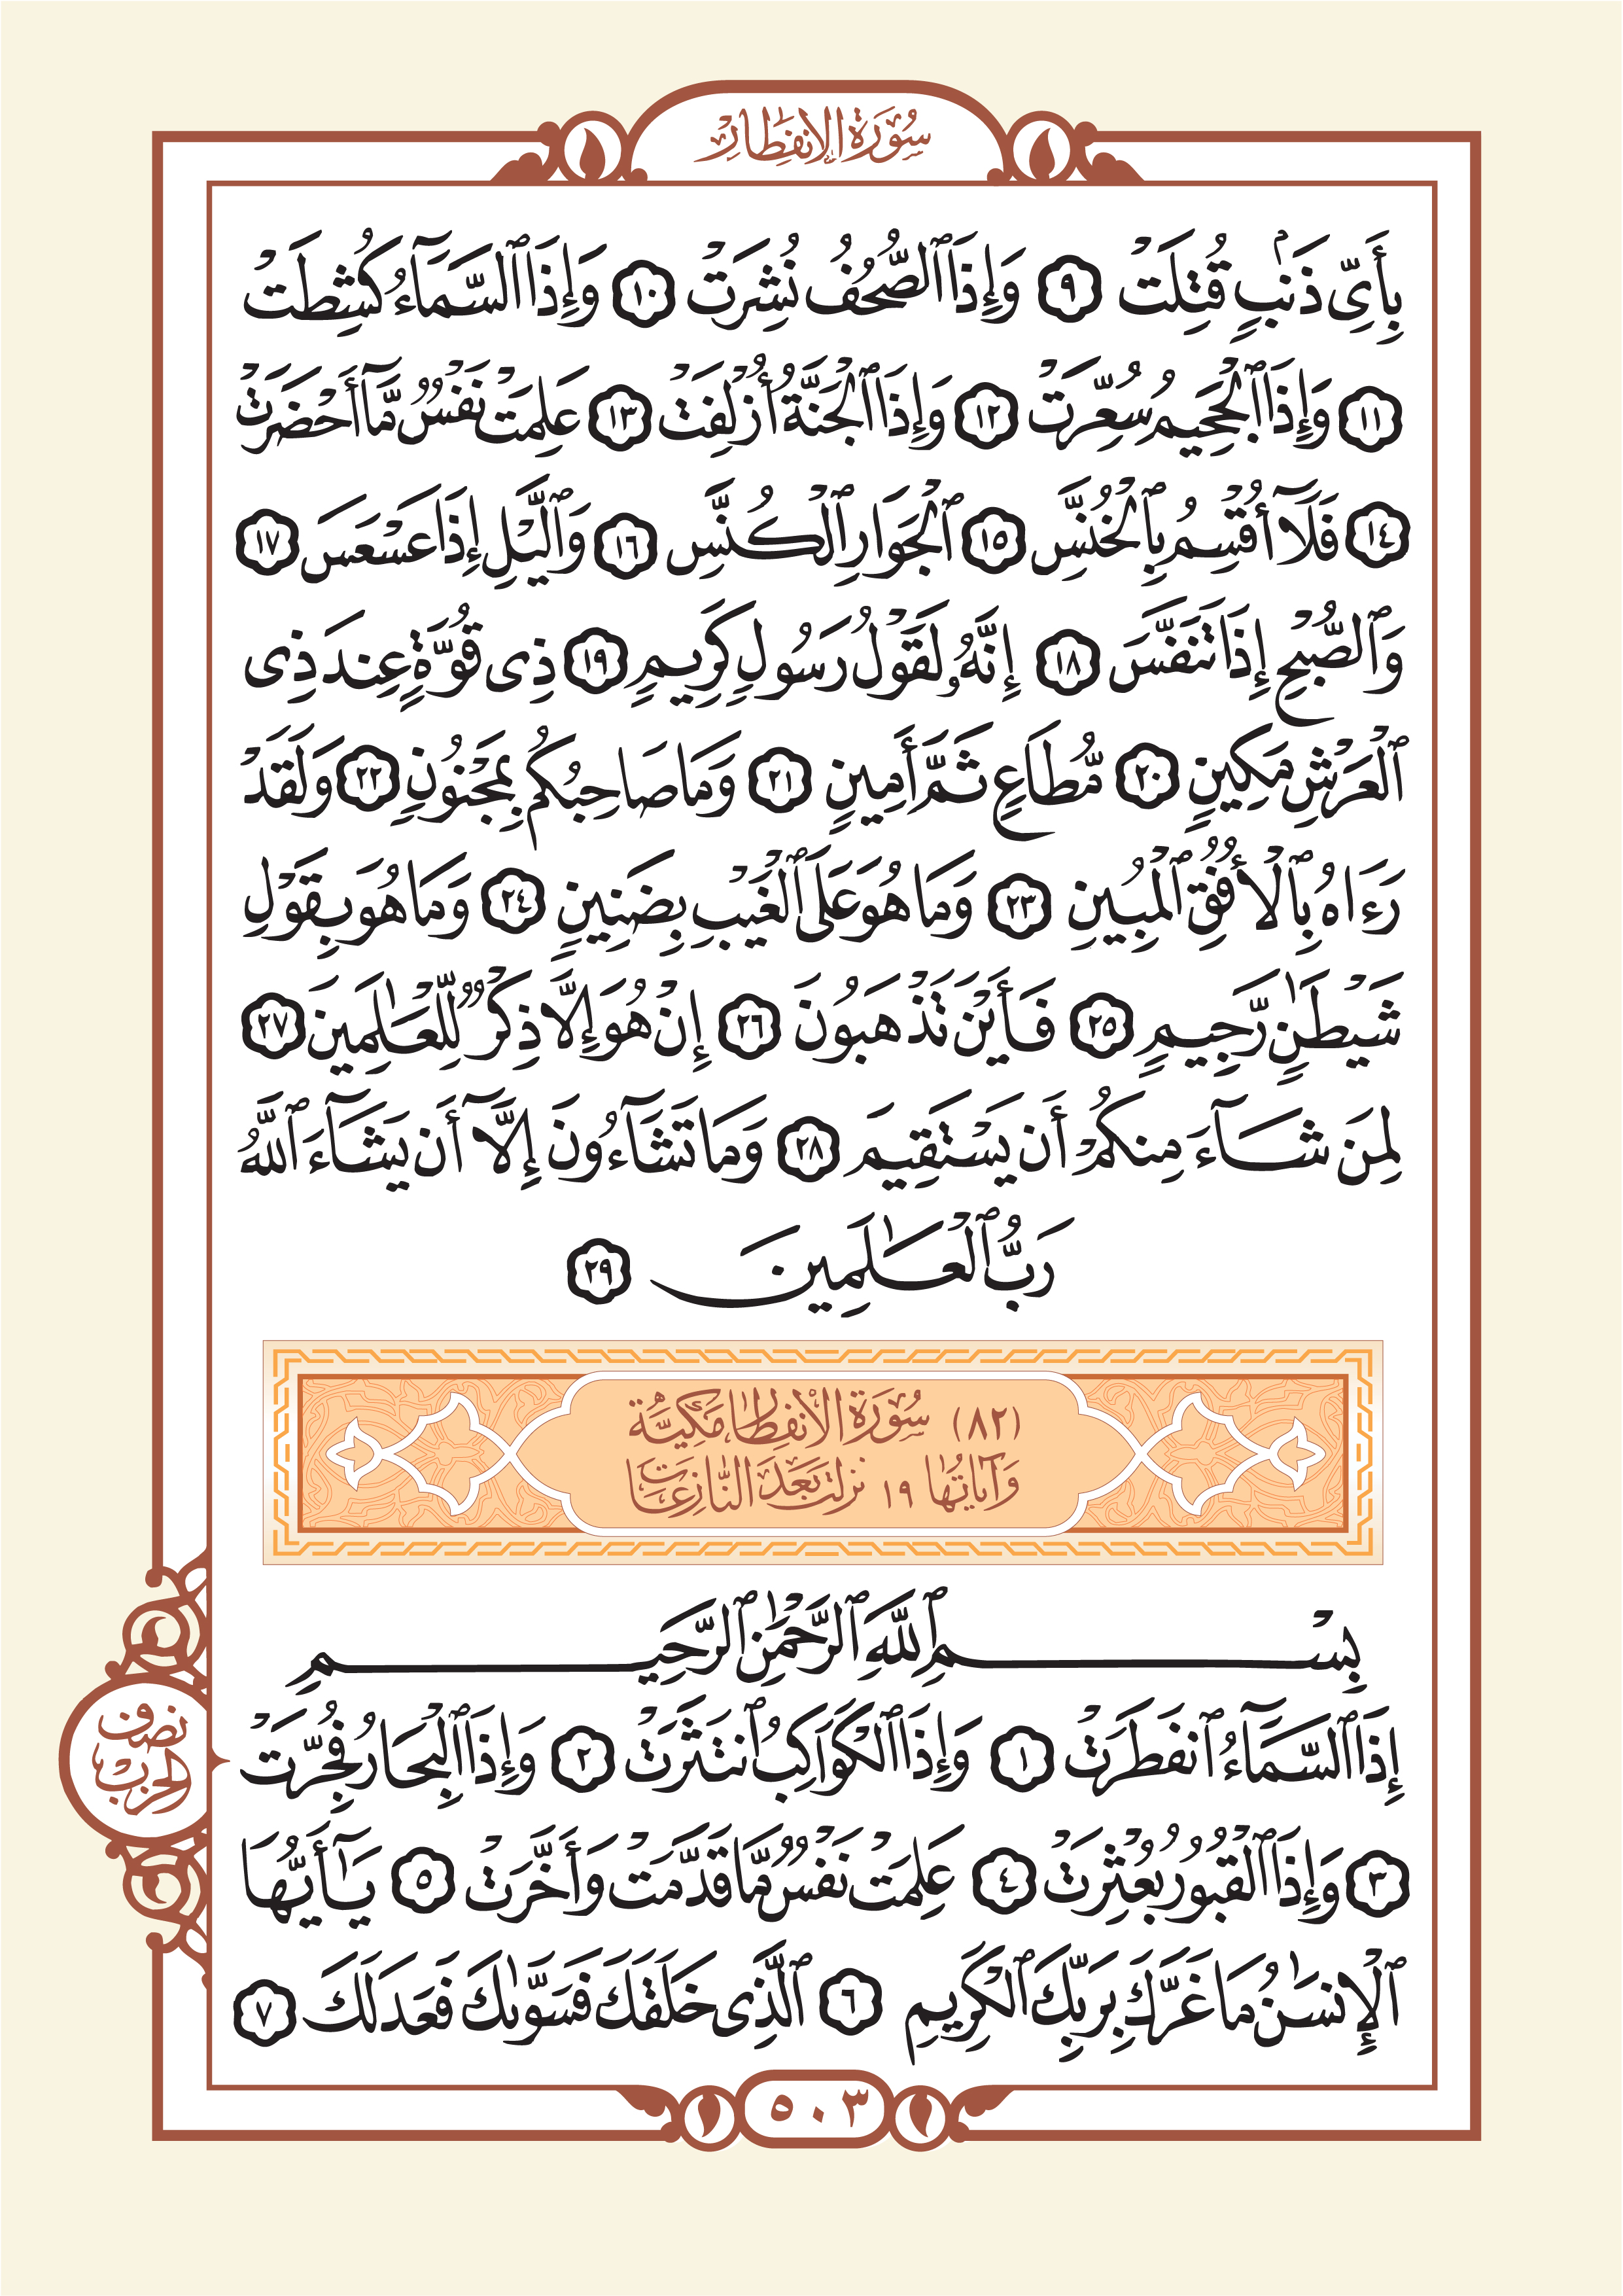 سُورَةُ الِانفِطَارِ
بِأَيِّ ذَنۢبٍ قُتِلَتْ ٩ وَإِذَا ٱلصُّحُفُ نُشِرَتْ ١٠ وَإِذَا ٱلسَّمَآءُ كُشِطَتْ
١١ وَإِذَا ٱلْجَحِيمُ سُعِّرَتْ ١٢ وَإِذَا ٱلْجَنَّةُ أُزْلِفَتْ ١٣ عَلِمَتْ نَفْسٌ مَّآ أَحْضَرَتْ
١٤ فَلَآ أُقْسِمُ بِٱلْخُنَّسِ ١٥ ٱلْجَوَارِ ٱلْكُنَّسِ ١٦ وَٱلَّيْلِ إِذَا عَسْعَسَ ١٧
وَٱلصُّبْحِ إِذَا تَنَفَّسَ ١٨ إِنَّهُۥ لَقَوْلُ رَسُولٍ كَرِيمٍ ١٩ ذِى قُوَّةٍ عِندَ ذِى
ٱلْعَرْشِ مَكِينٍ ٢٠ مُّطَاعٍ ثَمَّ أَمِينٍ ٢١ وَمَا صَاحِبُكُم بِمَجْنُونٍ ٢٢ وَلَقَدْ
رَءَاهُ بِٱلْأُفُقِ ٱلْمُبِينِ ٢٣ وَمَا هُوَ عَلَى ٱلْغَيْبِ بِضَنِينٍ ٢٤ وَمَا هُوَ بِقَوْلِ
شَيْطَٰنٍ رَّجِيمٍ ٢٥ فَأَيْنَ تَذْهَبُونَ ٢٦ إِنْ هُوَ إِلَّا ذِكْرٌ لِّلْعَٰلَمِينَ ٢٧
لِمَن شَآءَ مِنكُمْ أَن يَسْتَقِيمَ ٢٨ وَمَا تَشَآءُونَ إِلَّآ أَن يَشَآءَ ٱللَّهُ
رَبُّ ٱلْعَٰلَمِينَ ٢٩
(٨٢) سُورَةُ الِانفِطَارِ مَكِيَّةٌ
وَآيَاتُهَا ١٩ نَزَلَتْ بَعْدَ النَّازِعَاتِ
بِسْمِ ٱللَّهِ ٱلرَّحْمَٰنِ ٱلرَّحِيمِ
إِذَا ٱلسَّمَآءُ ٱنفَطَرَتْ ١ وَإِذَا ٱلْكَوَاكِبُ ٱنتَثَرَتْ ٢ وَإِذَا ٱلْبِحَارُ فُجِّرَتْ
٣ وَإِذَا ٱلْقُبُورُ بُعْثِرَتْ ٤ عَلِمَتْ نَفْسٌ مَّا قَدَّمَتْ وَأَخَّرَتْ ٥ يَٰٓأَيُّهَا
ٱلْإِنسَٰنُ مَا غَرَّكَ بِرَبِّكَ ٱلْكَرِيمِ ٦ ٱلَّذِى خَلَقَكَ فَسَوَّىٰكَ فَعَدَلَكَ ٧
نصف
الحزب
٥٠٣